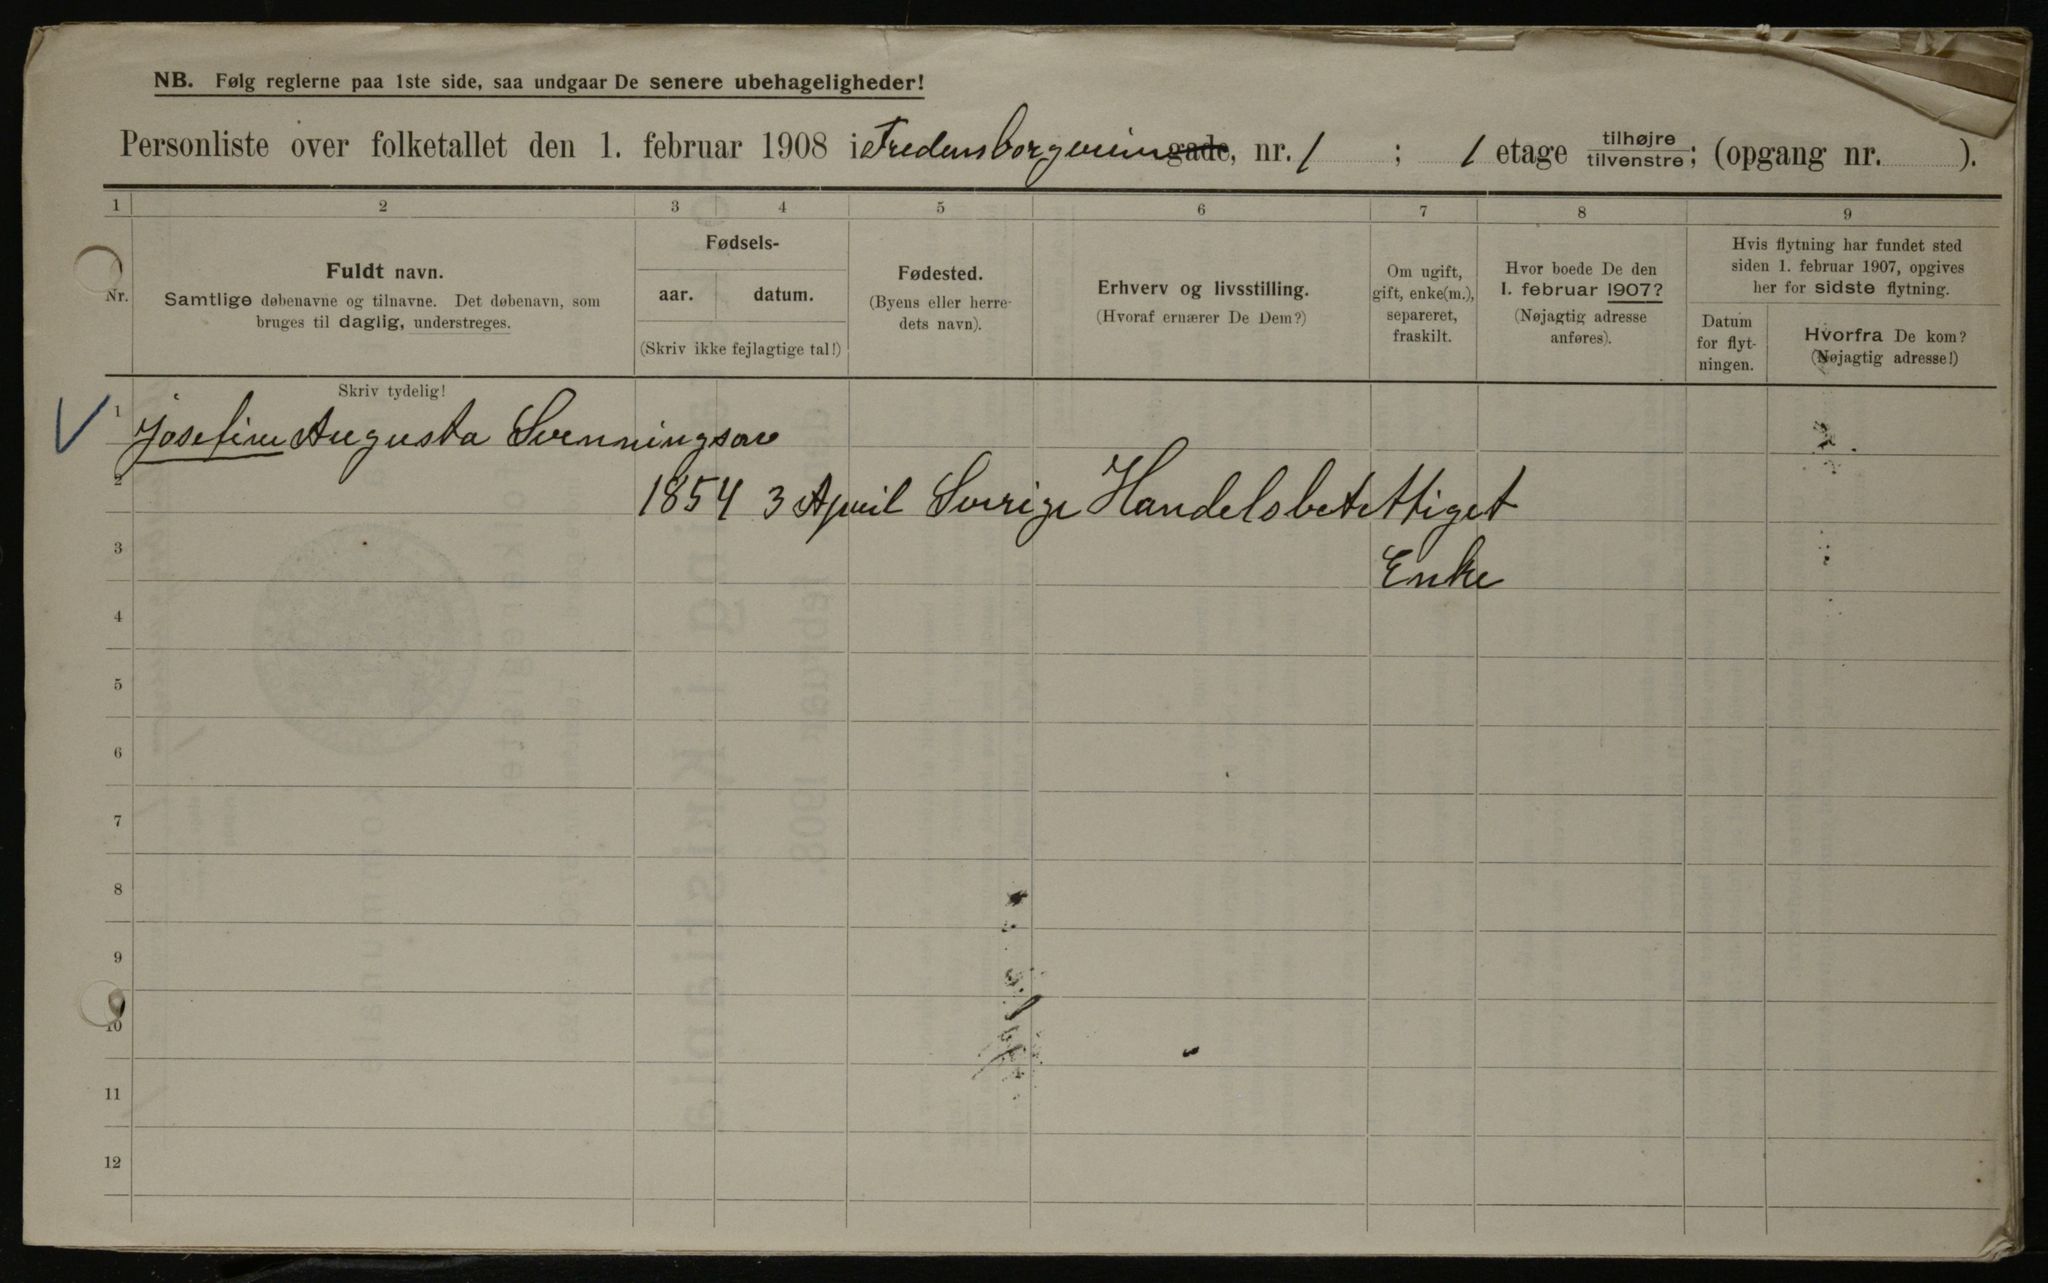 NB. Følg reglerne paa 1ste side, saa undgaar De senere ubehageligheder!
Personliste over folketallet den 1. februar 1908 i Fredensborgveien gade, nr. 1 ; 1 etage tilhøjre tilvenstre; (opgang nr. ).
1 2 3 4 5 6 7 8 9
Nr.
Fuldt navn.
Samtlige døbenavne og tilnavne. Det døbenavn, som
bruges til daglig, understreges.
Skriv tydelig!
Fødsels-
aar. datum.
(Skriv ikke fejlagtige tal!)
Fødested.
(Byens eller herre-
dets navn).
Erhverv og livsstilling.
(Hvoraf ernærer De Dem?)
Om ugift,
gift, enke(m.),
separeret,
fraskilt.
Hvor boede De den
1. februar 1907?
(Nøjagtig adresse
anføres).
Hvis flytning har fundet sted
siden 1. februar 1907, opgives
her for sidste flytning.
Datum
for flyt-
ningen.
Hvorfra De kom?
(Nøjagtig adresse!)
1 Josefine Augusta Svenningsen
2 1854 3 April Sverige Handelsbetettiget
3 Enke
4
5
6
7
8
9
10
11
12